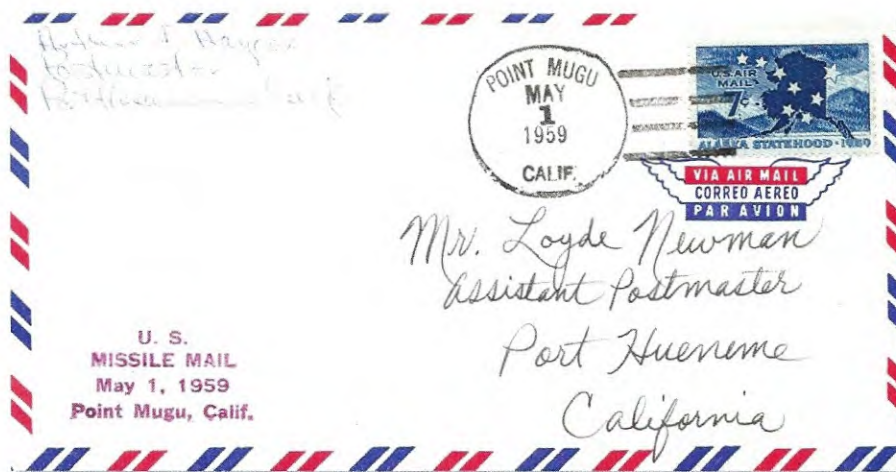 Postmaster
POINT MUGU
MAY
1
1959
CALIF.
U.S. AIR
MAIL
7¢
ALASKA STATEHOOD · 1959
VIA AIR MAIL
CORREO AEREO
PAR AVION
Mr. Loyde Newman
Assistant Postmaster
Port Hueneme
California
U. S.
MISSILE MAIL
May 1, 1959
Point Mugu, Calif.